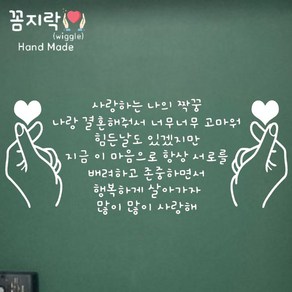 꼼지락
(wiggle)
Hand Made
사랑하는 나의 짝꿍
나랑 결혼해줘서 너무너무 고마워
힘든날도 있겠지만
지금 이 마음으로 항상 서로를
배려하고 존중하면서
행복하게 살아가자
많이 많이 사랑해